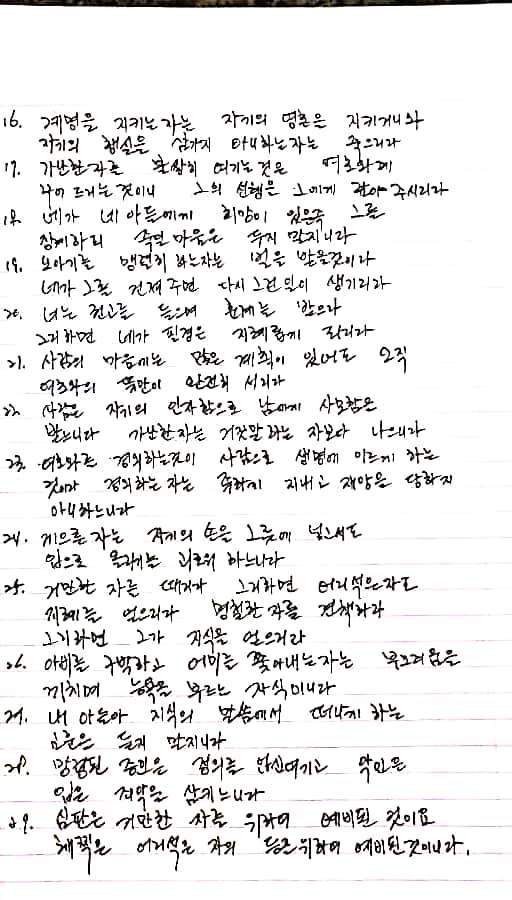 16. 계명을 지키는자는 자기의 영혼은 지키거니와
자기의 행실은 삼가지 아니하는자는 죽으리라
17. 가난한자를 불쌍히 여기는것은 여호와께
꾸어 드리는것이니 그의 선행은 그에게 갚아 주시리라
18. 네가 네 아들에게 희망이 있은즉 그를
징계하되 죽일 마음은 두지 말지니라
19. 노하기를 맹렬히 하는자는 벌은 받을것이라
네가 그를 건져주면 다시 그런일이 생기리라
20. 너는 권고를 들으며 훈계를 받으라
그리하면 네가 필경은 지혜롭게 되리라
21. 사람의 마음에는 많은 계획이 있어도 오직
여호와의 뜻만이 완전히 서리라
22. 사람은 자기의 인자함으로 남에게 사모함은
받느니라 가난한자는 거짓말하는 자보다 나으니라
23. 여호와를 경외하는것이 사람으로 생명에 이르게 하는
것이라 경외하는자는 족하게 지내고 재앙을 당하지
아니하느니라
24. 게으른자는 자기의 손을 그릇에 넣고서도
입으로 올리기를 괴로워 하느니라
25. 거만한 자를 때리라 그리하면 어리석은자도
지혜를 얻으리라 명철한 자를 견책하라
그리하면 그가 지식을 얻으리라
26. 아비를 구박하고 어미를 쫓아내는자는 부끄러움을
끼치며 능욕을 부르는 자식이니라
27. 내 아들아 지식의 말씀에서 떠나게 하는
교훈은 듣지 말지니라
28. 망령된 증인은 정의를 업신여기고 악인은
입은 죄악을 삼키느니라
29. 심판은 거만한 자를 위하여 예비된 것이요
채찍은 어리석은 자의 등을위하여 예비된것이니라.